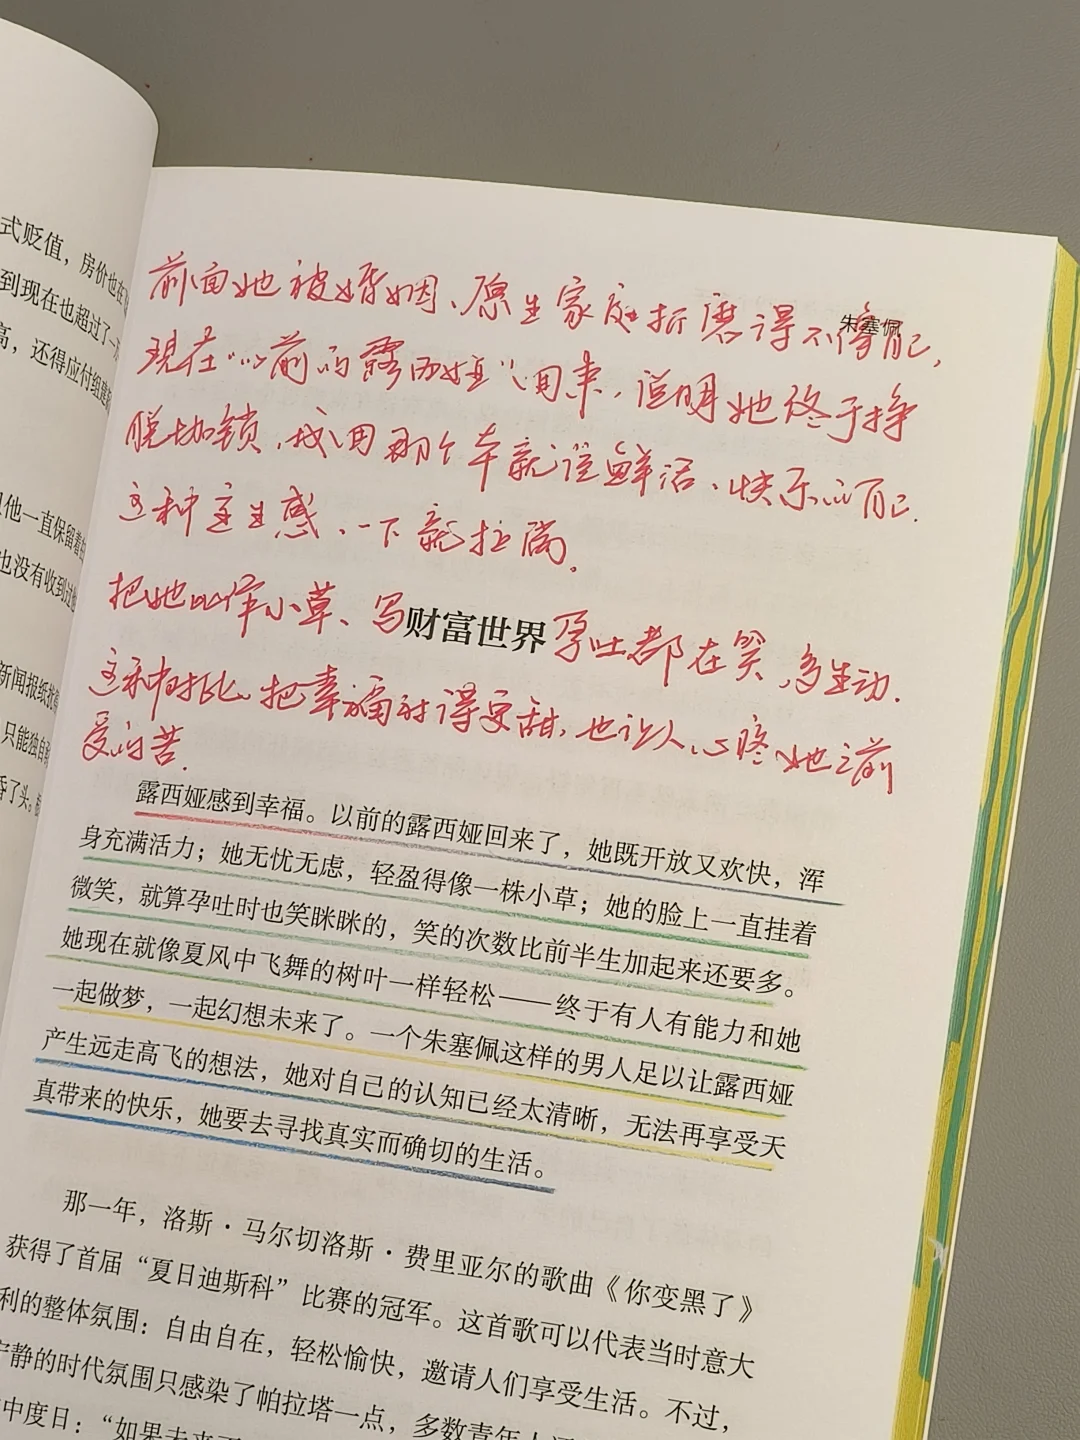 式贬值，房价也在
到现在也超过了一
高，还得应付组建
他一直保留着
也没有收到过他
新闻报纸扰
只能独自
昏了头。
朱塞佩
前面她被婚姻、原生家庭折磨得不像自己，
现在“以前的露西娅”回来，说明她终于挣
脱枷锁，找回那个本就该鲜活、快乐的自己.
这种重生感、一下就拉满。
把她比作小草、写
财富世界
孕吐都在笑，多生动.
这种对比，把幸福衬得更甜，也让人心疼她之前
受的苦.
露西娅感到幸福。以前的露西娅回来了，她既开放又欢快，浑
身充满活力；她无忧无虑，轻盈得像一株小草；她的脸上一直挂着
微笑，就算孕吐时也笑眯眯的，笑的次数比前半生加起来还要多。
她现在就像夏风中飞舞的树叶一样轻松——终于有人有能力和她
一起做梦，一起幻想未来了。一个朱塞佩这样的男人足以让露西娅
产生远走高飞的想法，她对自己的认知已经太清晰，无法再享受天
真带来的快乐，她要去寻找真实而确切的生活。
那一年，洛斯·马尔切洛斯·费里亚尔的歌曲《你变黑了》
获得了首届“夏日迪斯科”比赛的冠军。这首歌可以代表当时意大
利的整体氛围：自由自在，轻松愉快，邀请人们享受生活。不过，
宁静的时代氛围只感染了帕拉塔一点，多数青年人
中度日：“如果未来